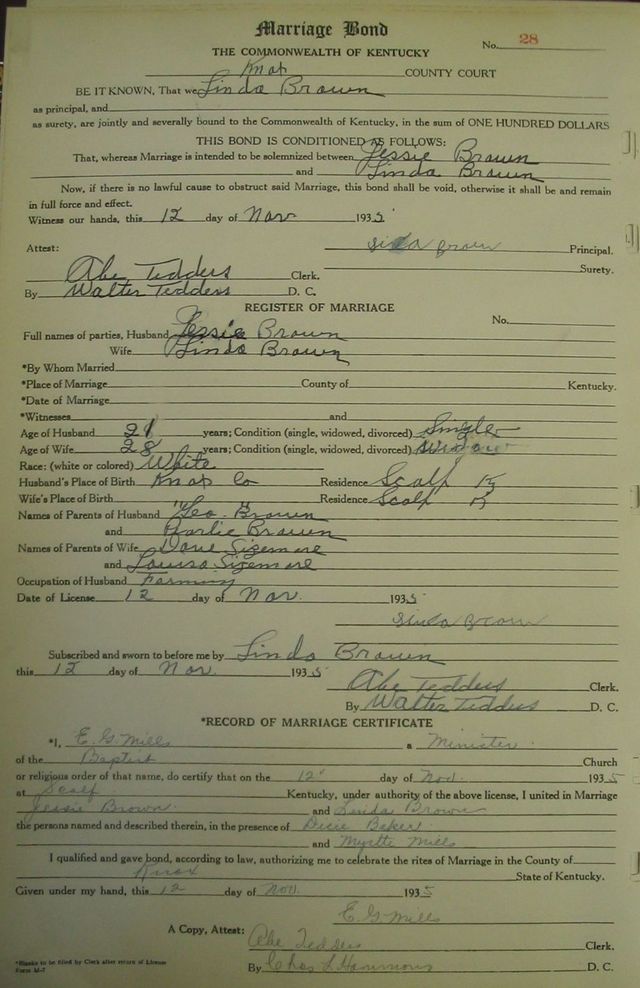 Marriage Bond
No. 28
THE COMMONWEALTH OF KENTUCKY
Knox COUNTY COURT
BE IT KNOWN, That we Linda Brown
as principal, and
as surety, are jointly and severally bound to the Commonwealth of Kentucky, in the sum of ONE HUNDRED DOLLARS
THIS BOND IS CONDITIONED AS FOLLOWS:
That, whereas Marriage is intended to be solemnized between Jessie Brown
and Linda Brown
Now, if there is no lawful cause to obstruct said Marriage, this bond shall be void, otherwise it shall be and remain
in full force and effect.
Witness our hands, this 12 day of Nov 1935
Linda Brown Principal.
Attest:
Surety.
Abe Tedders Clerk.
By Walter Tedders D. C.
REGISTER OF MARRIAGE
No.
Full names of parties, Husband Jessie Brown
Wife Linda Brown
*By Whom Married
*Place of Marriage County of Kentucky.
*Date of Marriage
*Witnesses and
Age of Husband 21 years; Condition (single, widowed, divorced) Single
Age of Wife 28 years; Condition (single, widowed, divorced) Widow
Race: (white or colored) White
Husband's Place of Birth Knox Co Residence Scalf Ky
Wife's Place of Birth Residence Scalf Ky
Names of Parents of Husband "Geo" Brown
and Brown
Names of Parents of Wife Dave Sizemore
and Louisa Sizemore
Occupation of Husband Farming
Date of License 12 day of Nov. 1935
Linda Brown
Subscribed and sworn to before me by Linda Brown
this 12 day of Nov. 1935
Abe Tedders Clerk.
By Walter Tedders D. C.
*RECORD OF MARRIAGE CERTIFICATE
*I, E. G. Mills a Minister
of the Baptist Church
or religious order of that name, do certify that on the 12" day of Nov. 1935
at Scalf Kentucky, under authority of the above license, I united in Marriage
Jessie Brown and Linda Brown
the persons named and described therein, in the presence of Dicie Baker
and Myrtle Mills
I qualified and gave bond, according to law, authorizing me to celebrate the rites of Marriage in the County of
Knox State of Kentucky.
Given under my hand, this 12 day of Nov. 1935
E. G. Mills
A Copy, Attest: Abe Tedders Clerk.
*Blanks to be filled by Clerk after return of License
Form M-7
By Chas L Hammons D. C.